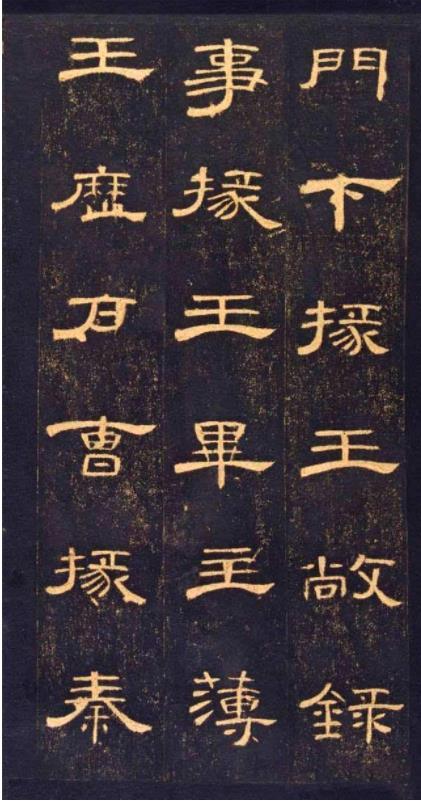 門下掾王敞録
事掾王畢主薄
王歷戶曹掾秦